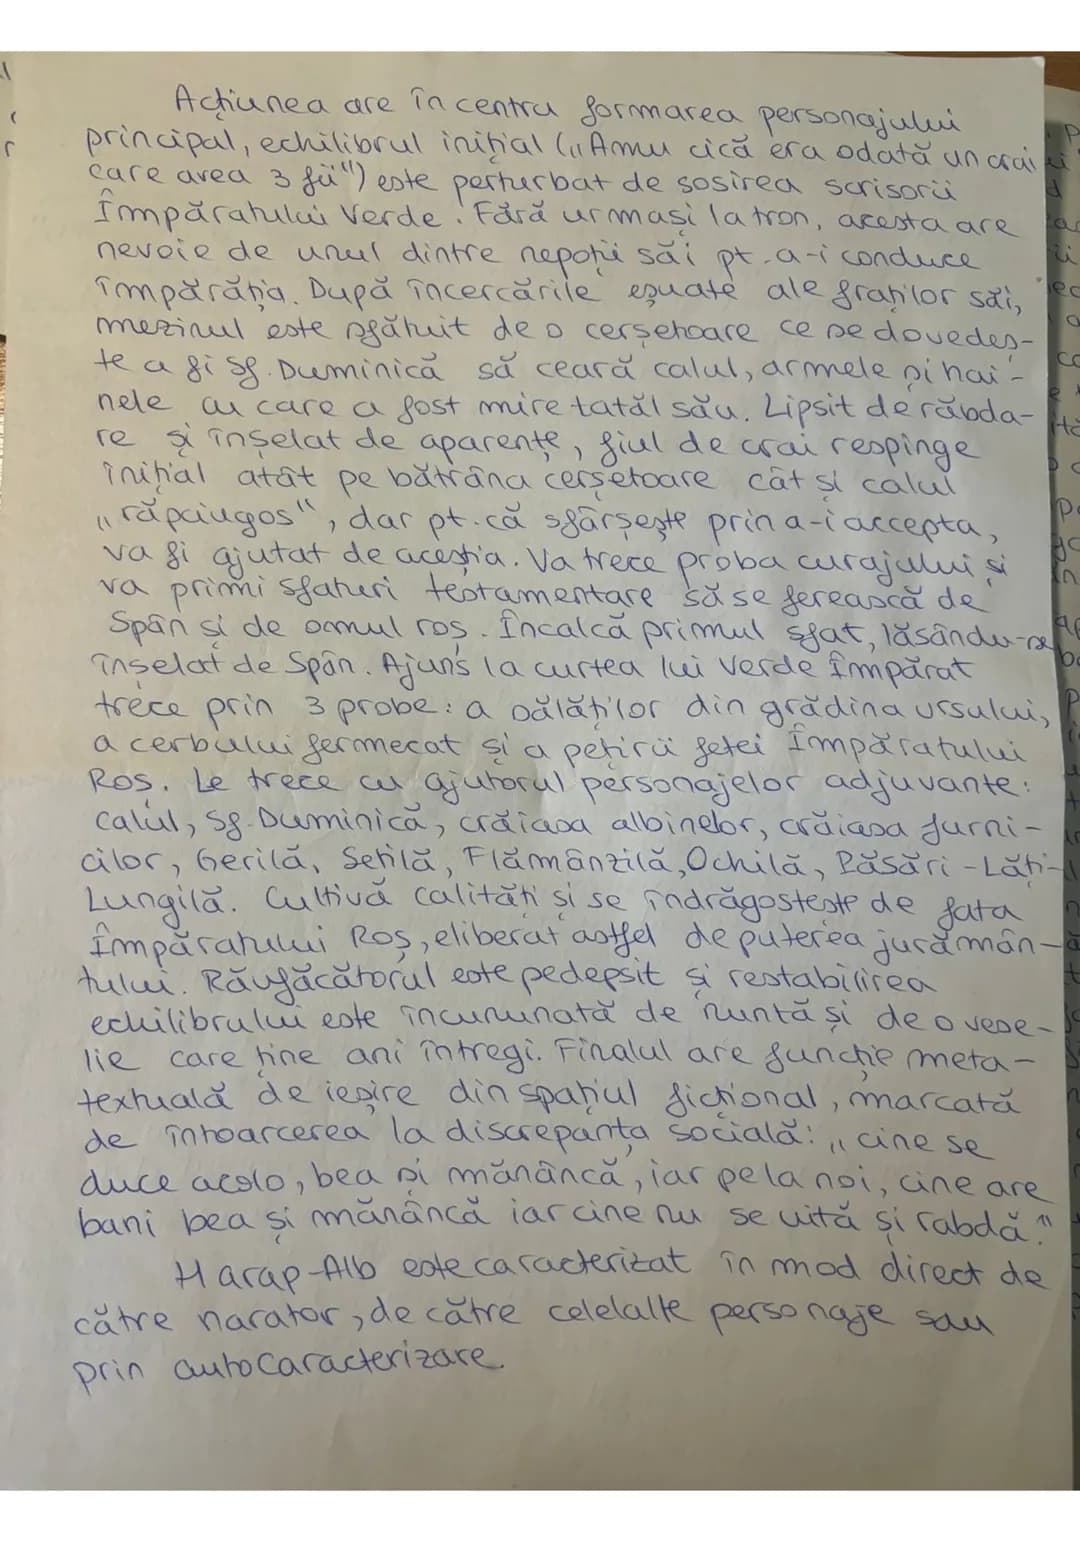 Acțiunea are în centru formarea personajului
principal, echilibrul inițial („Amu cică era odată un crai
care avea 3 fii") este perturbat de sosirea scrisorii
Împăratului Verde. Fără urmași la tron, acesta are
nevoie de unul dintre nepoții săi pt. a-i conduce
împărăția. După încercările eșuate ale fraților săi,
mezinul este sfătuit de o cerșetoare ce se dovedeș-
te a fi sf. Duminică să ceară calul, armele și hai-
nele cu care a fost mire tatăl său. Lipsit de răbda-
re și înșelat de aparențe, fiul de crai respinge
inițial atât pe bătrâna cerșetoare cât și calul
„răpciugos", dar pt. că sfârșește prin a-i accepta,
va fi ajutat de aceștia. Va trece proba curajului și
va primi sfaturi testamentare să se ferească de
Spân și de omul roș. Încalcă primul sfat, lăsându-se
înșelat de Spân. Ajuns la curtea lui Verde Împărat
trece prin 3 probe: a sălăților din grădina ursului,
a cerbului fermecat și a pețirii fetei Împăratului
Roș. Le trece cu ajutorul personajelor adjuvante:
calul, Sf. Duminică, crăiasa albinelor, crăiasa furni-
cilor, Gerilă, Setilă, Flămânzilă, Ochilă, Păsări-Lăți-
Lungilă. Cultivă calități și se îndrăgostește de fata
Împăratului Roș, eliberat astfel de puterea jurămân-
tului. Răufăcătorul este pedepsit și restabilirea
echilibrului este încununată de nuntă și de o vese-
lie care ține ani întregi. Finalul are funcție meta-
textuală de ieșire din spațiul ficțional, marcată
de întoarcerea la discrepanța socială: „cine se
duce acolo, bea și mănâncă, iar pe la noi, cine are
bani bea și mănâncă iar cine nu se uită și rabdă."
Harap-Alb este caracterizat în mod direct de
către narator, de către celelalte personaje sau
prin autocaracterizare.